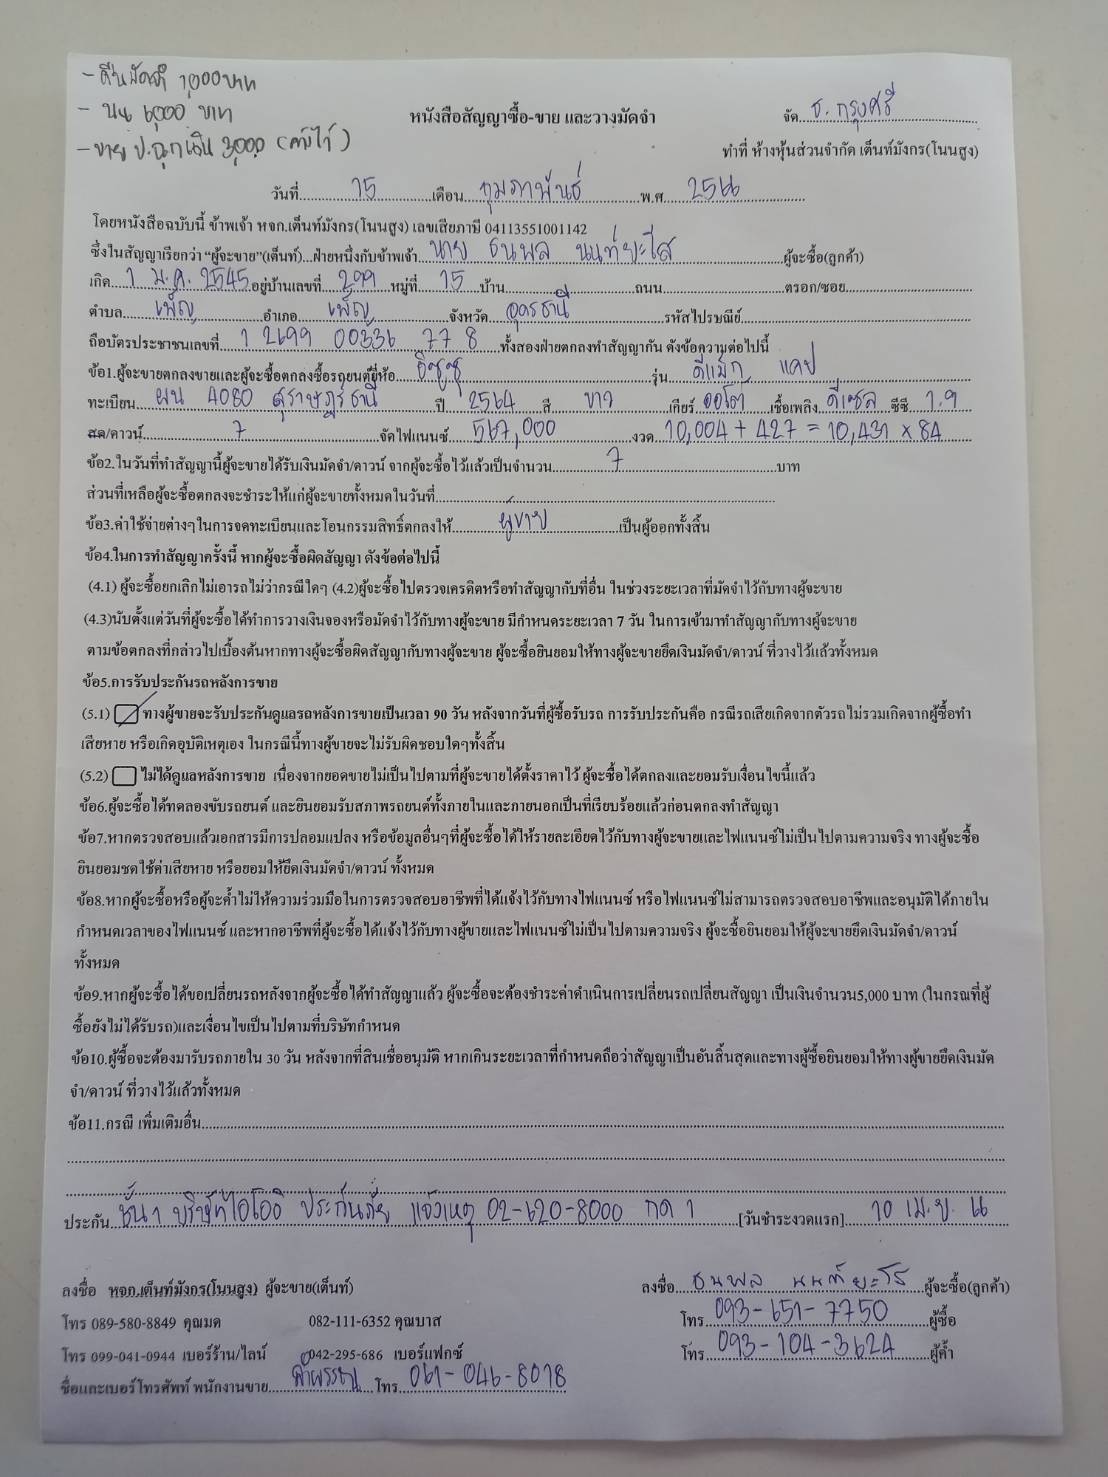 - คืนมัดจำ 1,000 บาท
- นน 6,000 บาท
- ขาย ป.ฉุกเฉิน 3,000
หนังสือสัญญาซื้อ-ขาย และวางมัดจำ
จัด ธ.กรุงศรี
ทำที่ ห้างหุ้นส่วนจำกัด เต็นท์มังกร(โนนสูง)
วันที่ 15 เดือน กุมภาพันธ์ พ.ศ. 2566
โดยหนังสือฉบับนี้ ข้าพเจ้า หจก.เต็นท์มังกร(โนนสูง) เลขเสียภาษี 04113551001142
ซึ่งในสัญญาเรียกว่า "ผู้จะขาย"(เต็นท์)...ฝ่ายหนึ่งกับข้าพเจ้า นาย ธนพล นนท์ยะโส ผู้จะซื้อ(ลูกค้า)
เกิด 1 ม.ค. 2545 อยู่บ้านเลขที่ 299 หมู่ที่ 15 บ้าน ถนน ตรอก/ซอย
ตำบล เพ็ญ อำเภอ เพ็ญ จังหวัด อุดรธานี รหัสไปรษณีย์
ถือบัตรประชาชนเลขที่ 1 2699 00336 77 8 ทั้งสองฝ่ายตกลงทำสัญญากัน ดังข้อความต่อไปนี้
ข้อ1.ผู้จะขายตกลงขายและผู้จะซื้อตกลงซื้อรถยนต์ยี่ห้อ อีซูซุ รุ่น ดีแม็ก แคป
ทะเบียน ผน 4080 สุราษฎร์ธานี ปี 2564 สี ขาว เกียร์ ออโต้ เชื้อเพลิง ดีเซล ซีซี 1.9
สด/ดาวน์ 7 จัดไฟแนนซ์ 567,000 งวด 10,004 + 427 = 10,431 x 84
ข้อ2.ในวันที่ทำสัญญานี้ผู้จะขายได้รับเงินมัดจำ/ดาวน์ จากผู้จะซื้อไว้แล้วเป็นจำนวน 7 บาท
ส่วนที่เหลือผู้จะซื้อตกลงจะชำระให้แก่ผู้จะขายทั้งหมดในวันที่
ข้อ3.ค่าใช้จ่ายต่างๆในการจดทะเบียนและโอนกรรมสิทธิ์ตกลงให้ ผู้ขาย เป็นผู้ออกทั้งสิ้น
ข้อ4.ในการทำสัญญาครั้งนี้ หากผู้จะซื้อผิดสัญญา ดังข้อต่อไปนี้
(4.1) ผู้จะซื้อยกเลิกไม่เอารถไม่ว่ากรณีใดๆ (4.2)ผู้จะซื้อไปตรวจเครดิตหรือทำสัญญากับที่อื่น ในช่วงระยะเวลาที่มัดจำไว้กับทางผู้จะขาย
(4.3)นับตั้งแต่วันที่ผู้จะซื้อได้ทำการวางเงินจองหรือมัดจำไว้กับทางผู้จะขาย มีกำหนดระยะเวลา 7 วัน ในการเข้ามาทำสัญญากับทางผู้จะขาย
ตามข้อตกลงที่กล่าวไปเบื้องต้นหากทางผู้จะซื้อผิดสัญญากับทางผู้จะขาย ผู้จะซื้อยินยอมให้ทางผู้จะขายยึดเงินมัดจำ/ดาวน์ ที่วางไว้แล้วทั้งหมด
ข้อ5.การรับประกันรถหลังการขาย
(5.1) ทางผู้ขายจะรับประกันดูแลรถหลังการขายเป็นเวลา 90 วัน หลังจากวันที่ผู้ซื้อรับรถ การรับประกันคือ กรณีรถเสียเกิดจากตัวรถไม่รวมเกิดจากผู้ซื้อทำ
เสียหาย หรือเกิดอุบัติเหตุเอง ในกรณีนี้ทางผู้ขายจะไม่รับผิดชอบใดๆทั้งสิ้น
(5.2) ไม่ได้ดูแลหลังการขาย เนื่องจากยอดขายไม่เป็นไปตามที่ผู้จะขายได้ตั้งราคาไว้ ผู้จะซื้อได้ตกลงและยอมรับเงื่อนไขนี้แล้ว
ข้อ6.ผู้จะซื้อได้ทดลองขับรถยนต์ และยินยอมรับสภาพรถยนต์ทั้งภายในและภายนอกเป็นที่เรียบร้อยแล้วก่อนตกลงทำสัญญา
ข้อ7.หากตรวจสอบแล้วเอกสารมีการปลอมแปลง หรือข้อมูลอื่นๆที่ผู้จะซื้อได้ให้รายละเอียดไว้กับทางผู้จะขายและไฟแนนซ์ไม่เป็นไปตามความจริง ทางผู้จะซื้อ
ยินยอมชดใช้ค่าเสียหาย หรือยอมให้ยึดเงินมัดจำ/ดาวน์ ทั้งหมด
ข้อ8.หากผู้จะซื้อหรือผู้จะค้ำไม่ให้ความร่วมมือในการตรวจสอบอาชีพที่ได้แจ้งไว้กับทางไฟแนนซ์ หรือไฟแนนซ์ไม่สามารถตรวจสอบอาชีพและอนุมัติได้ภายใน
กำหนดเวลาของไฟแนนซ์ และหากอาชีพที่ผู้จะซื้อได้แจ้งไว้กับทางผู้ขายและไฟแนนซ์ไม่เป็นไปตามความจริง ผู้จะซื้อยินยอมให้ผู้จะขายยึดเงินมัดจำ/ดาวน์
ทั้งหมด
ข้อ9.หากผู้จะซื้อได้ขอเปลี่ยนรถหลังจากผู้จะซื้อได้ทำสัญญาแล้ว ผู้จะซื้อจะต้องชำระค่าดำเนินการเปลี่ยนรถเปลี่ยนสัญญา เป็นเงินจำนวน5,000 บาท (ในกรณที่ผู้
ซื้อยังไม่ได้รับรถ)และเงื่อนไขเป็นไปตามที่บริษัทกำหนด
ข้อ10.ผู้ซื้อจะต้องมารับรถภายใน 30 วัน หลังจากที่สินเชื่ออนุมัติ หากเกินระยะเวลาที่กำหนดถือว่าสัญญาเป็นอันสิ้นสุดและทางผู้ซื้อยินยอมให้ทางผู้ขายยึดเงินมัด
จำ/ดาวน์ ที่วางไว้แล้วทั้งหมด
ข้อ11.กรณี เพิ่มเติมอื่น
ประกัน ชั้น 1 บริษัทไอโออิ ประกันภัย แจ้งเหตุ 02-620-8000 กด 1 [วันชำระงวดแรก] 10 เม.ย. 66
ลงชื่อ หจก.เต็นท์มังกร(โนนสูง) ผู้จะขาย(เต็นท์)
ลงชื่อ ธนพล นนท์ยะโส ผู้จะซื้อ(ลูกค้า)
โทร 089-580-8849 คุณมด 082-111-6352 คุณบาส
โทร 093-651-7750 ผู้ซื้อ
โทร 099-041-0944 เบอร์ร้าน/ไลน์ 042-295-686 เบอร์แฟกซ์
โทร 093-104-3624 ผู้ค้ำ
ชื่อและเบอร์โทรศัพท์ พนักงานขาย โทร 061-046-8018